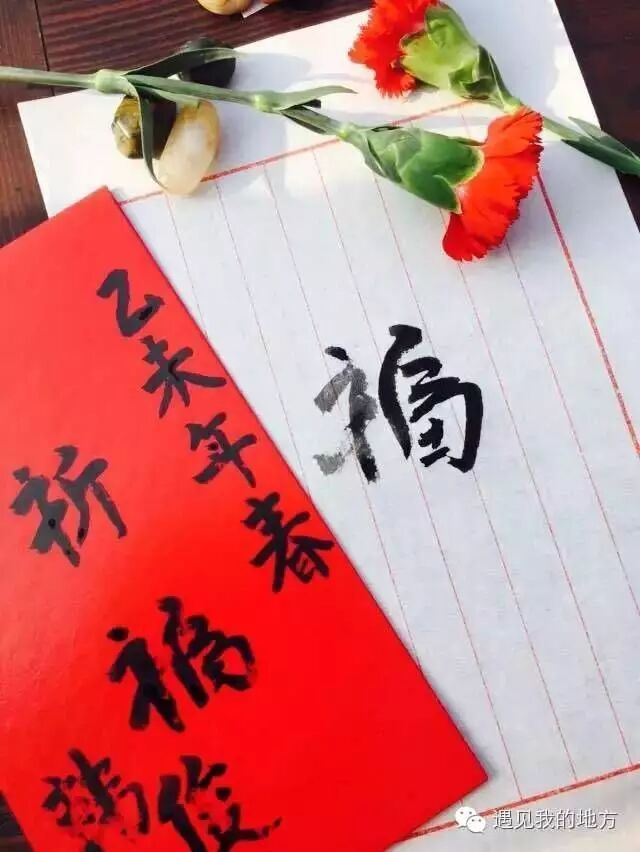 乙未年春
祈福
福
遇见我的地方